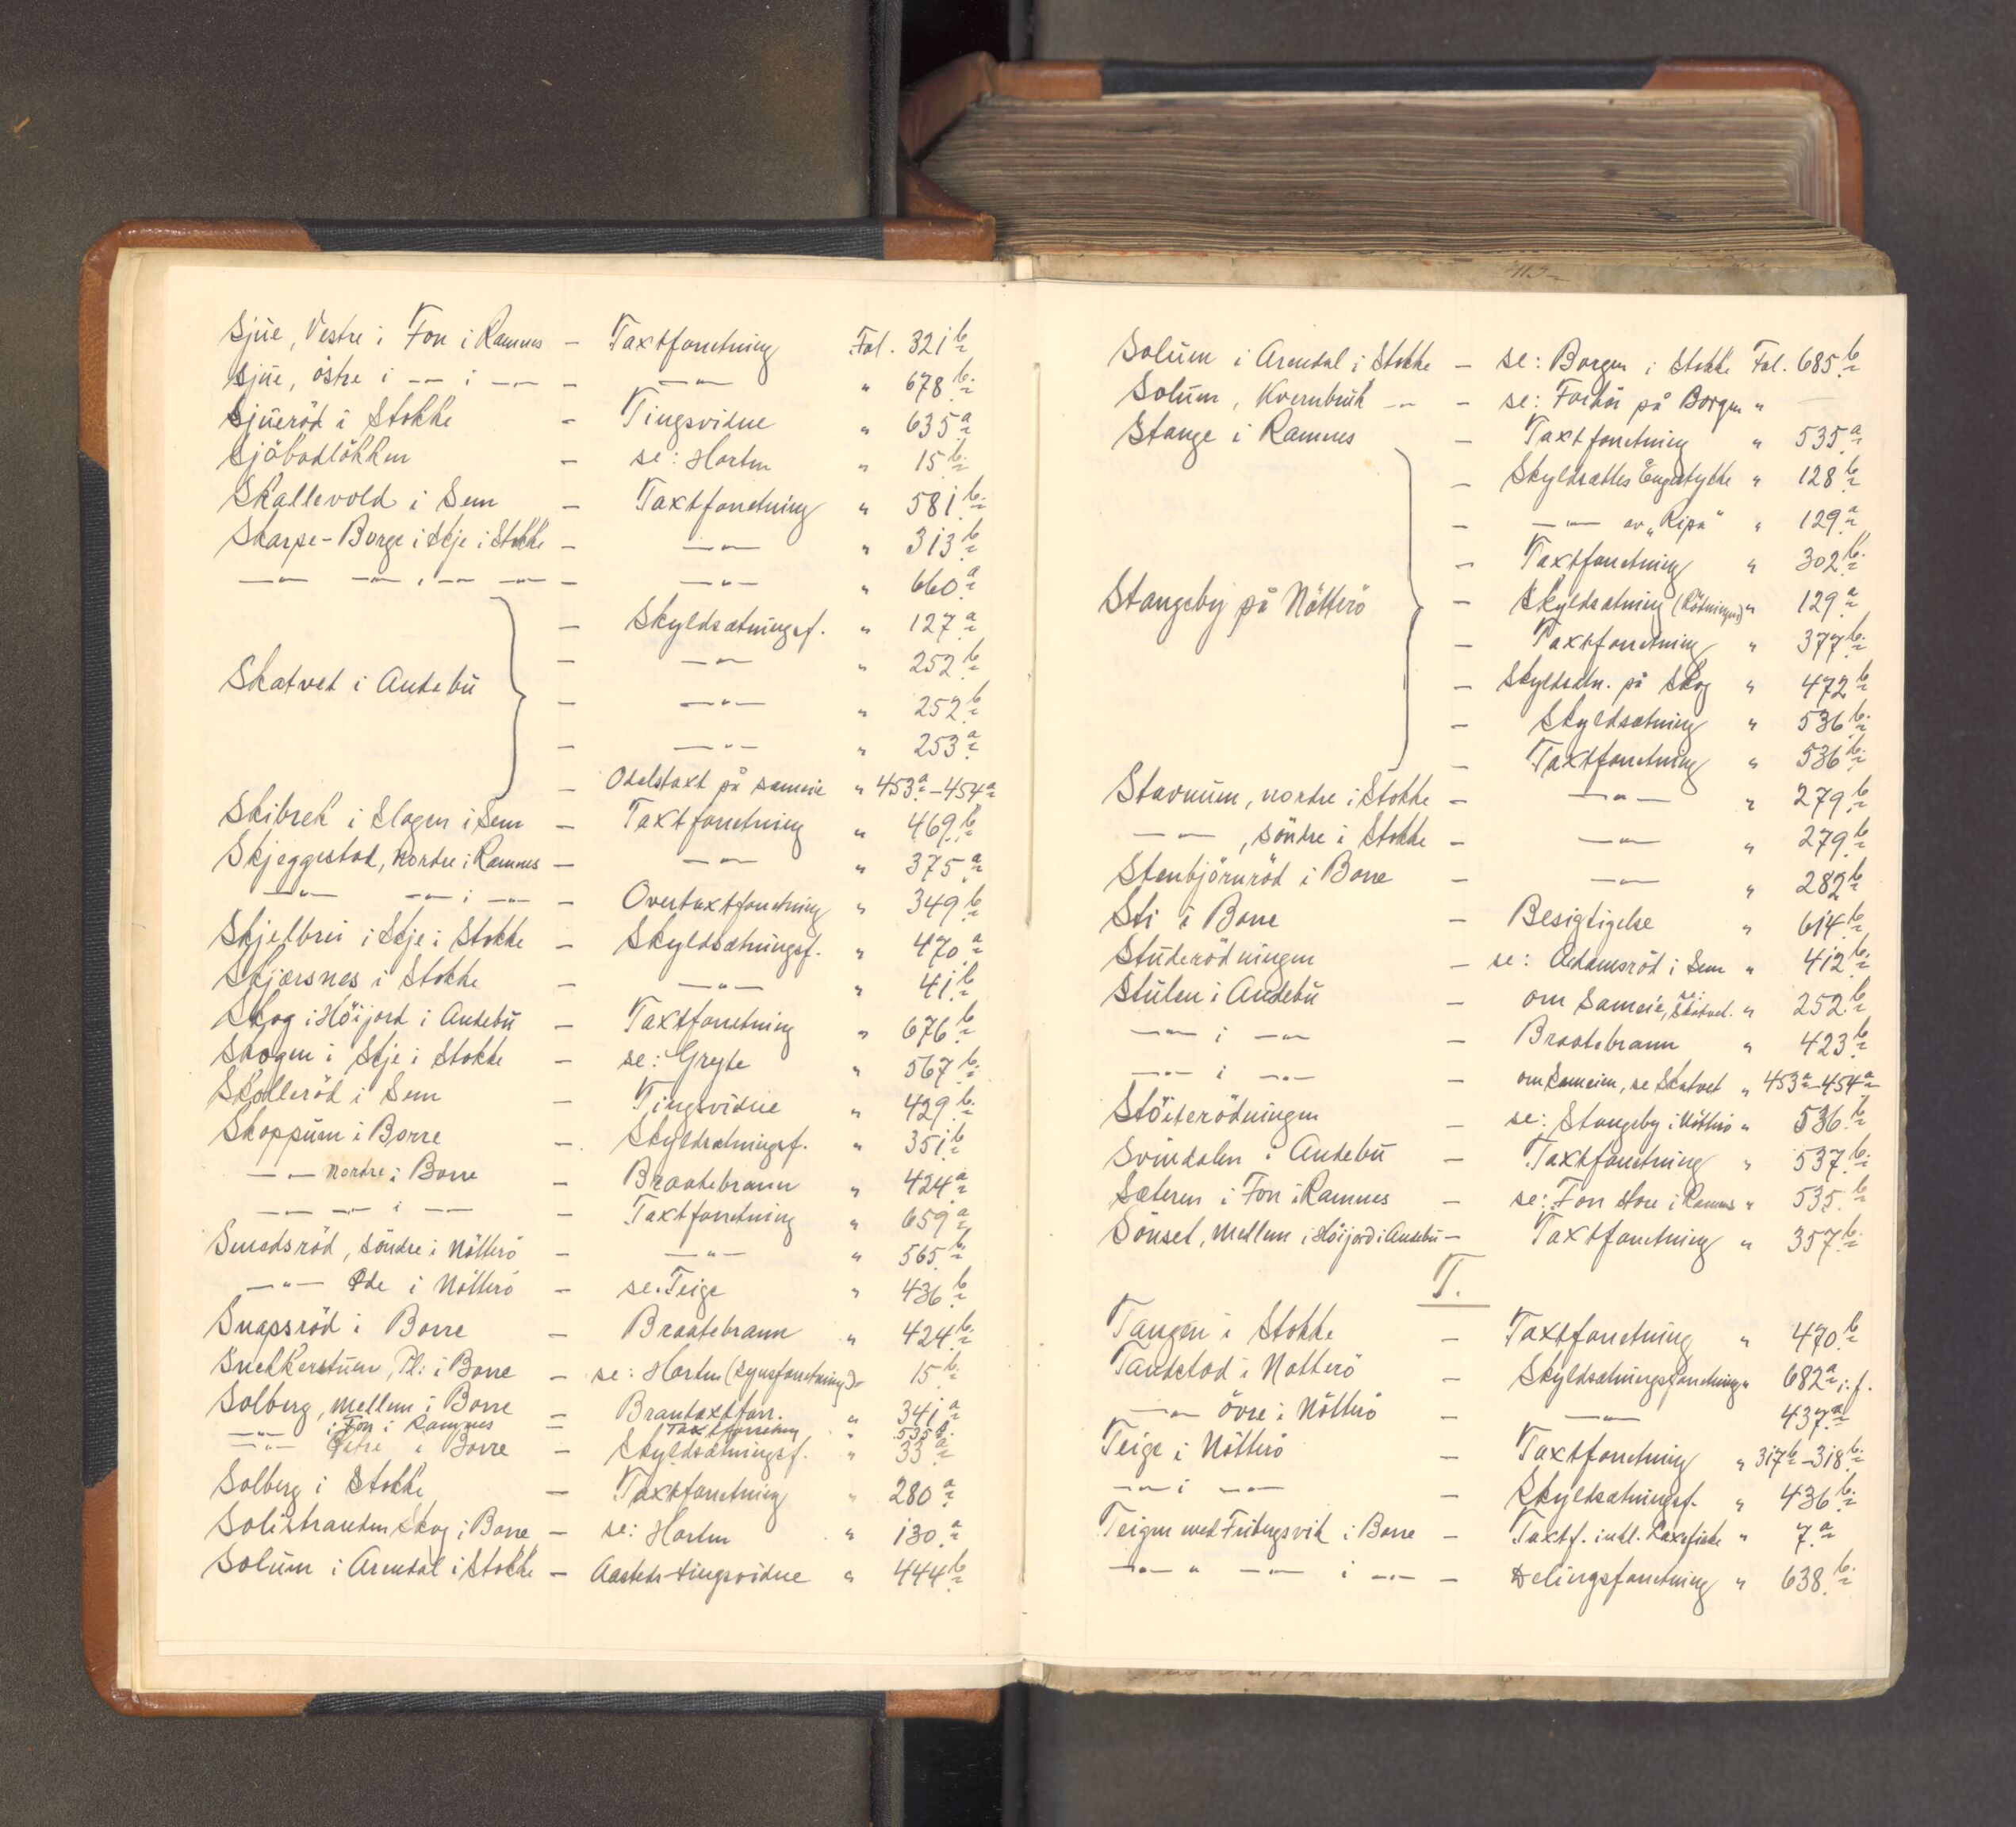 Sjue, Vestre i Fon i Ramnes – Taxtforretning Fol. 321 b
Sjue, östre i –"– i –"– – –"– " 678 b
Sjueröd i Stokke – Tingsvidne " 635 a
Sjöbodlökken – se: Horten " 15 b
Skallevold i Sem – Taxtforretning " 581 b
Skarpe-Borge i Skje i Stokke – –"– " 313 b
–"– –"– i –"– –"– – –"– " 660 a
– Skyldsætningsf. " 127 a
– –"– " 252 b
Skatvet i Andebu
– –"– " 252 b
– –"– " 253 a
– Odelstaxt på sameie " 453 a – 454 a
Skibrek i Slagen i Sem – Taxtforretning " 469 b
Skjeggestad, nordre i Ramnes – –"– " 375 a
–"– –"– i –"– – Overtaxtforretning " 349 b
Skjelbrei i Skje i Stokke – Skyldsætningsf. " 470 a
Skjærsnes i Stokke – –"– " 41 b
Skog i Höijord i Andebu – Taxtforretning " 676 b
Skogen i Skje i Stokke – se: Gryte " 567 b
Skolleröd i Sem – Tingsvidne " 429 b
Skoppum i Borre – Skyldsætningsf. " 351 b
–"– nordre i Borre – Braatebrann " 424 a
–"– –"– i –"– – Taxtforretning " 659 a
Smedsröd, söndre i Nötterö – –"– " 565 b
–"– Øde i Nötterö – se: Teige " 436 b
Snapsröd i Borre – Braatebrann " 424 b
Snekkerstuen, Pl. i Borre – se: Horten (Synsforretning) " 15 b
Solberg, mellem i Borre – Brantaxtforr. " 341 a
–"– i Fon i Ramnes – Taxtforretning " 535 b
–"– Østre i Borre – Skyldsætningsf. " 33 a
Solberg i Stokke – Taxtforretning " 280 a
Solistranden Skog i Borre – se: Horten " 130 a
Solum i Arendal i Stokke – Aasteds-tingsvidne " 444 b
Solum i Arendal i Stokke – se: Borgen i Stokke Fol. 685 b
Solum, Kvernbruk –"– – se: Forbör på Borgen " –
Stange i Ramnes – Taxtforretning " 535 a
– Skyldsættes Engstykke " 128 b
– –"– av „Ripa" " 129 a
– Taxtforretning " 302 b
Stangeby på Nötterö – Skyldsætning (Rödningen) " 129 a
– Taxtforretning " 377 b
– Skyldsætn. på Skog " 472 b
– Skyldsætning " 536 b
– Taxtforretning " 536 b
Stavnum, nordre i Stokke – –"– " 279 b
–"– , söndre i Stokke – –"– " 279 b
Stenbjörnröd i Borre – –"– " 282 b
Sti i Borre – Besigtigelse " 614 b
Studerödningen – se: Adamsröd i Sem " 412 b
Stulen i Andebu – om Sameie, se: Skatvet. " 252 b
–"– i –"– – Braatebrann " 423 b
–"– i –"– – om Sameien, se Skatvet " 453 a – 454 a
Stöiterödningen – se: Stangeby i Nötterö " 536 b
Svindalen i Andebu – Taxtforretning " 537 b
Sæteren i Fon i Ramnes – se: Fon store i Ramnes " 535 b
Sönset, mellem i Höijord i Andebu – Taxtforretning " 357 b
T.
Tangen i Stokke – Taxtforretning " 470 b
Tandstad i Nötterö – Skyldsætningsforretning " 682 a, i. f.
–"– övre i Nötterö – –"– 437 a
Teige i Nötterö – Taxtforretning " 317 b – 318 b
–"– i –"– – Skyldsætningsf. " 436 b
Teigen med Fribergsvik i Borre – Taxtf. inkl. Laxefiske " 7 a
–"– " –"– i –"– – Delingsforretning " 638 b